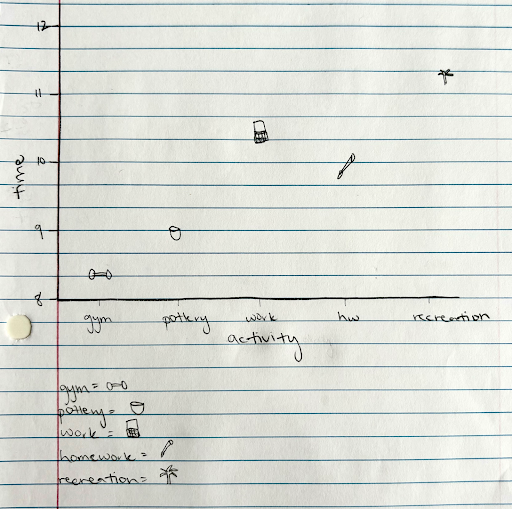 12
11
time
10
9
8
gym pottery work hw recreation
activity
gym =
pottery =
work =
homework =
recreation =